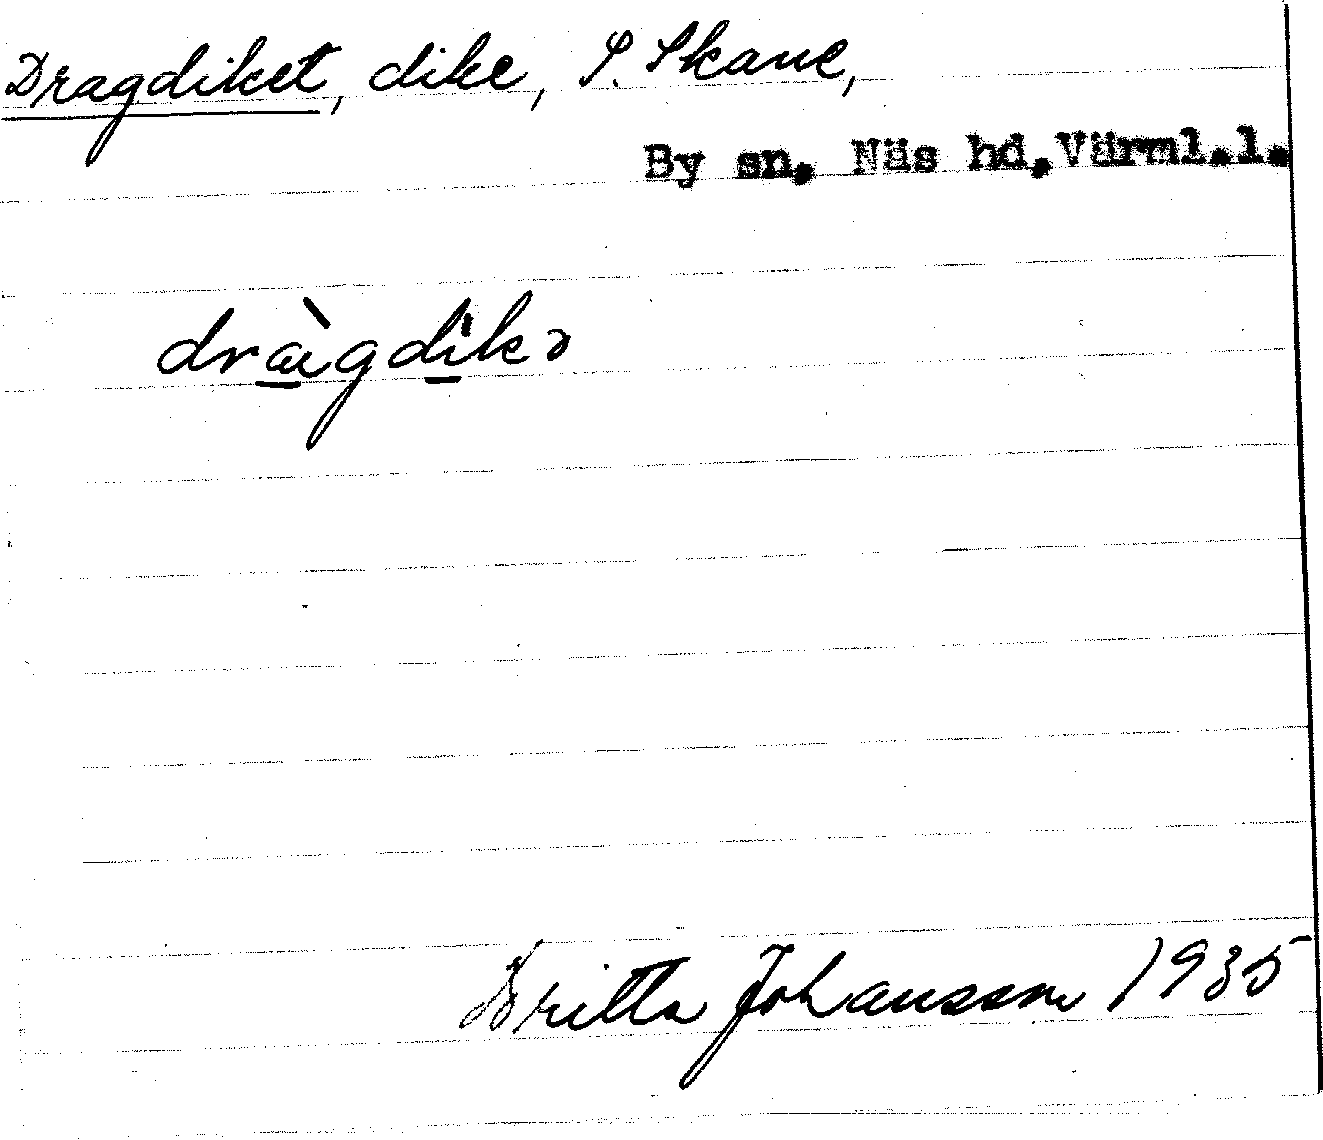 Dragdiket, dike, S. Skane,
By sn. Näs hd. Värml. l.
dràgdikə
Britta Johansson 1935